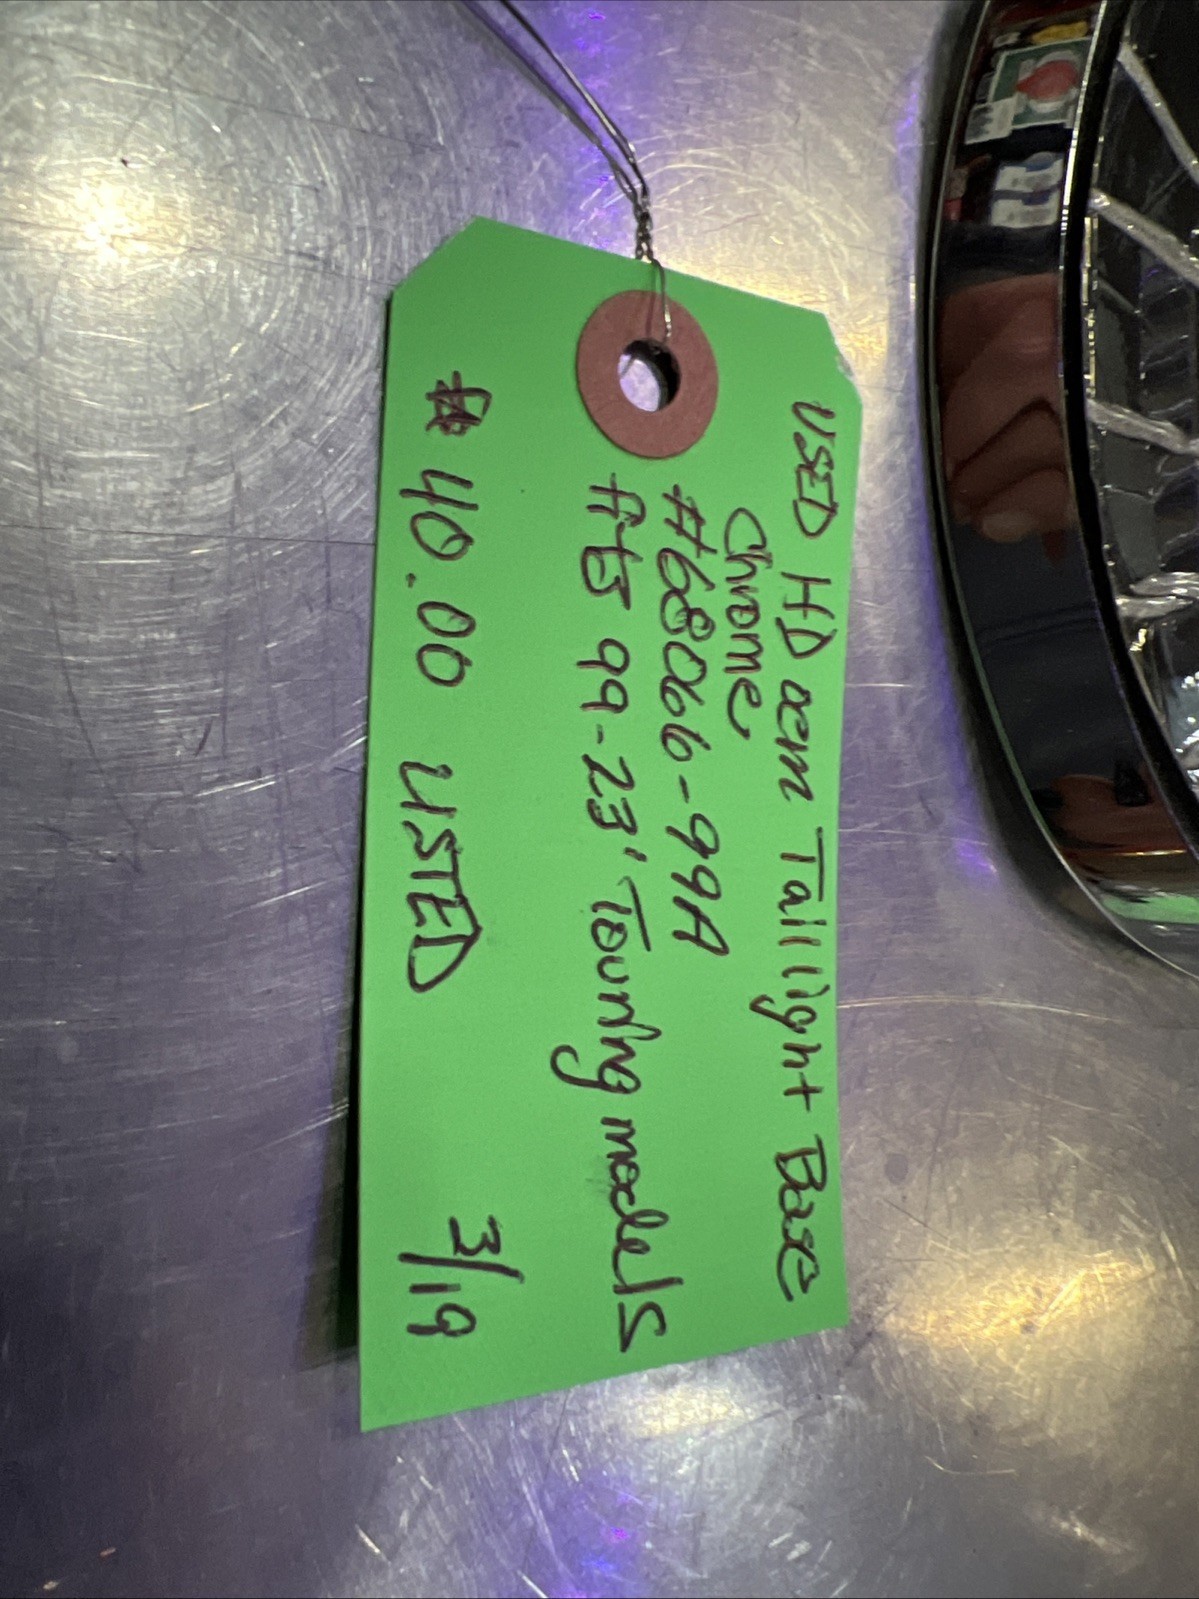 USED HD oem Taillight Base
Chrome
#68066-99A
fits 99-23' Touring models
$ 40.00 USED 3/19